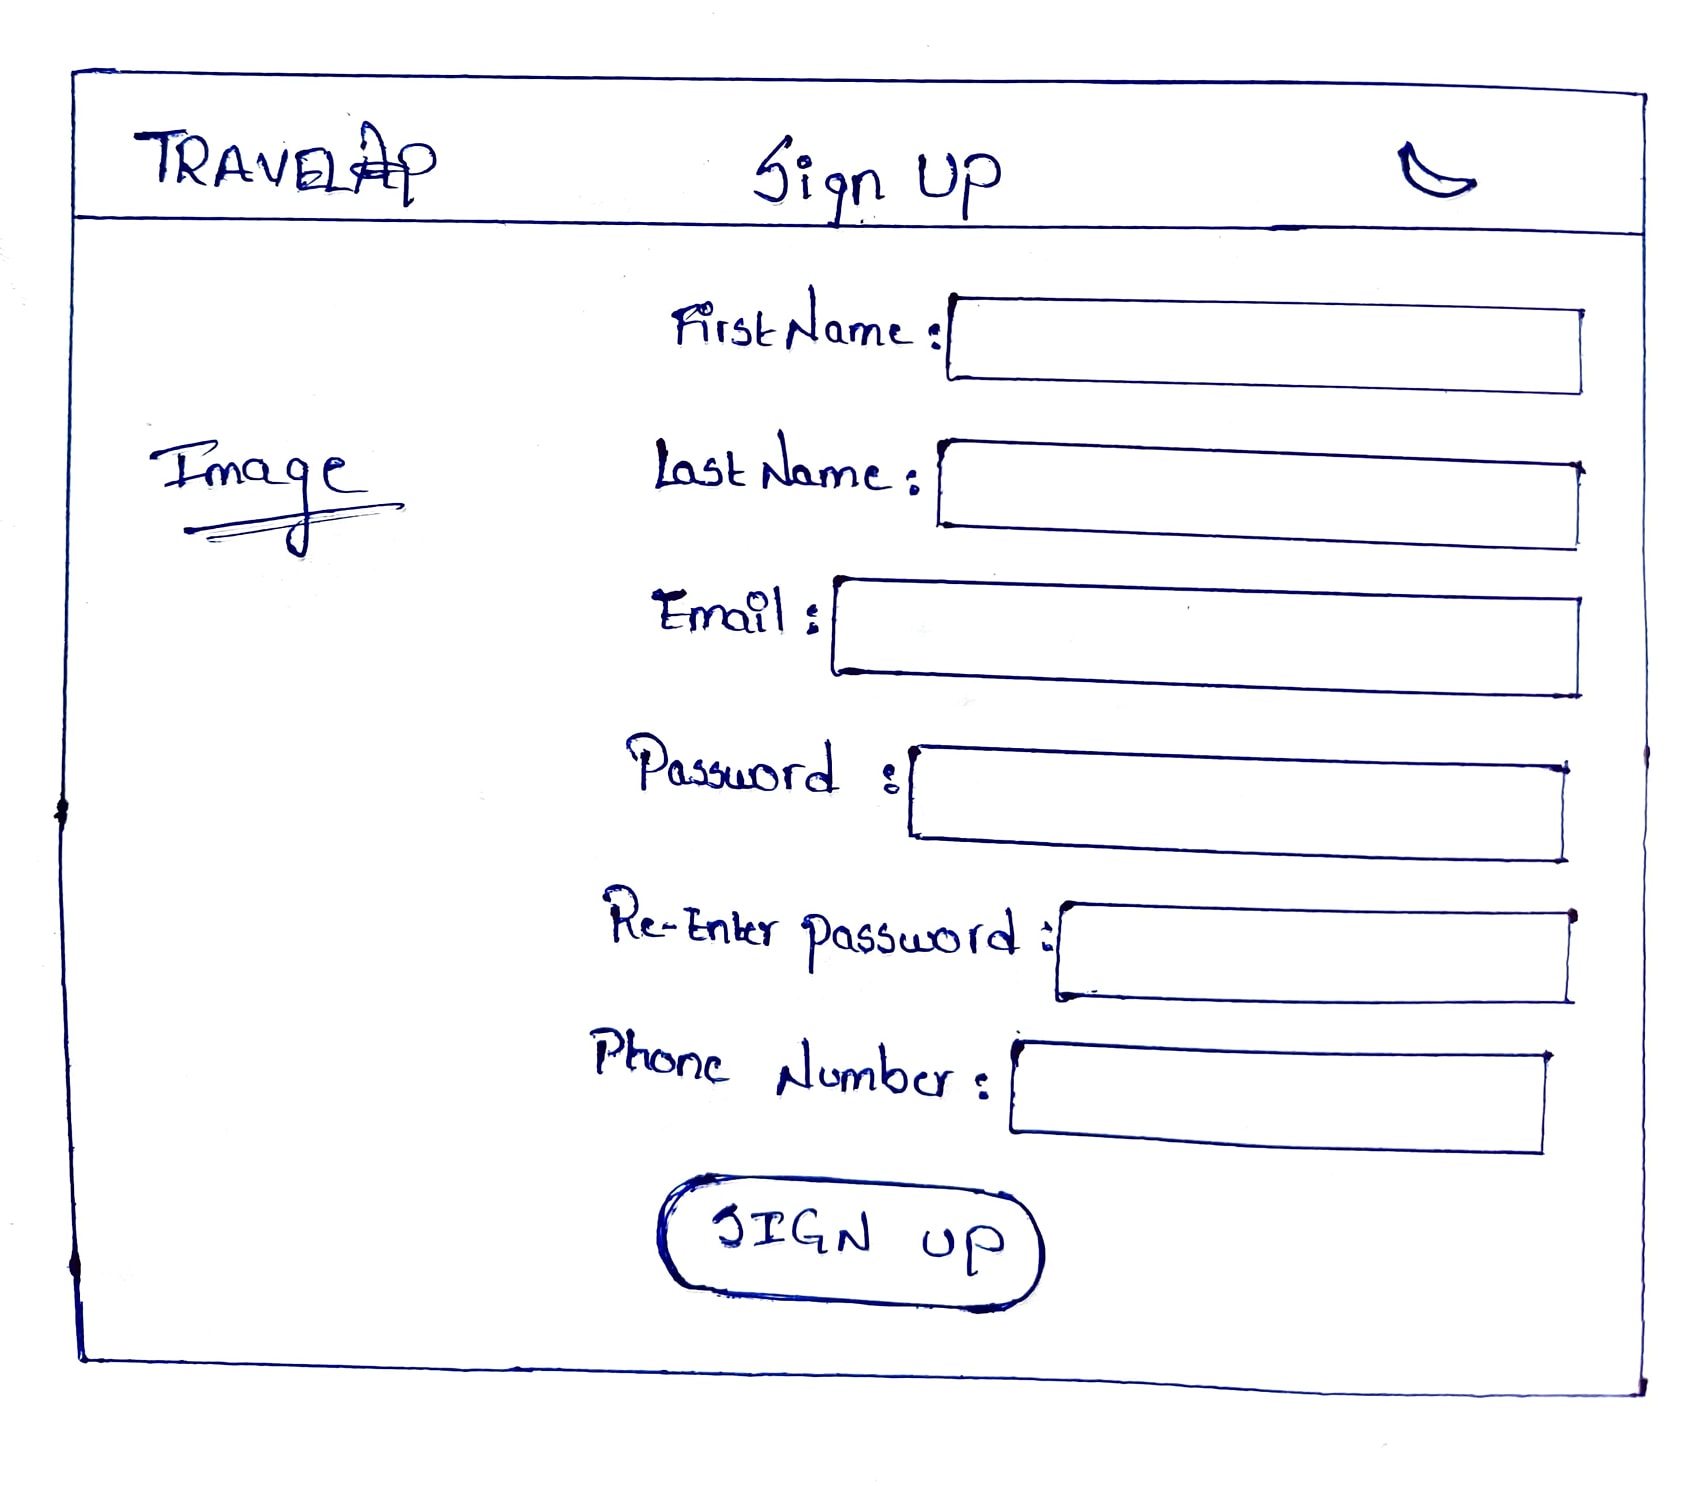 TRAVELAP
Sign UP
First Name :
Image
Last Name :
Email :
Password :
Re-Enter password :
Phone Number :
SIGN UP